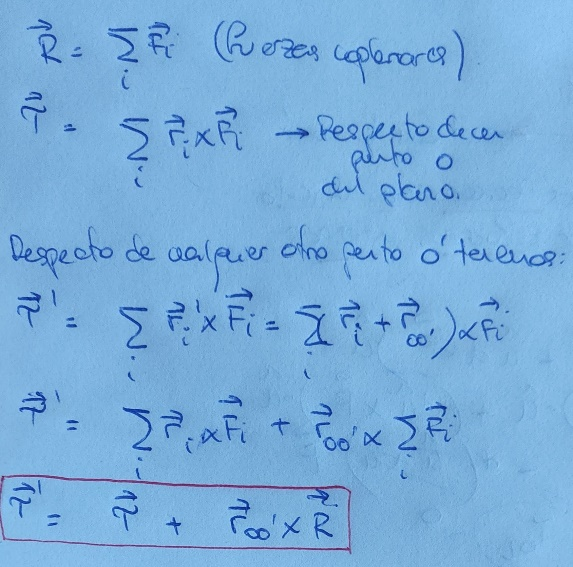 R⃗ = ∑_i F⃗i (Fuerzas coplanares)
τ⃗ = ∑_i r⃗i × F⃗i → Respecto de un
punto O
del plano.
Respecto de cualquier otro punto O' tenemos:
τ⃗' = ∑_i r⃗i' × F⃗i = ∑_i (r⃗i + r⃗oo') × F⃗i
τ⃗' = ∑_i r⃗i × F⃗i + r⃗oo' × ∑_i F⃗i
τ⃗' = τ⃗ + r⃗oo' × R⃗